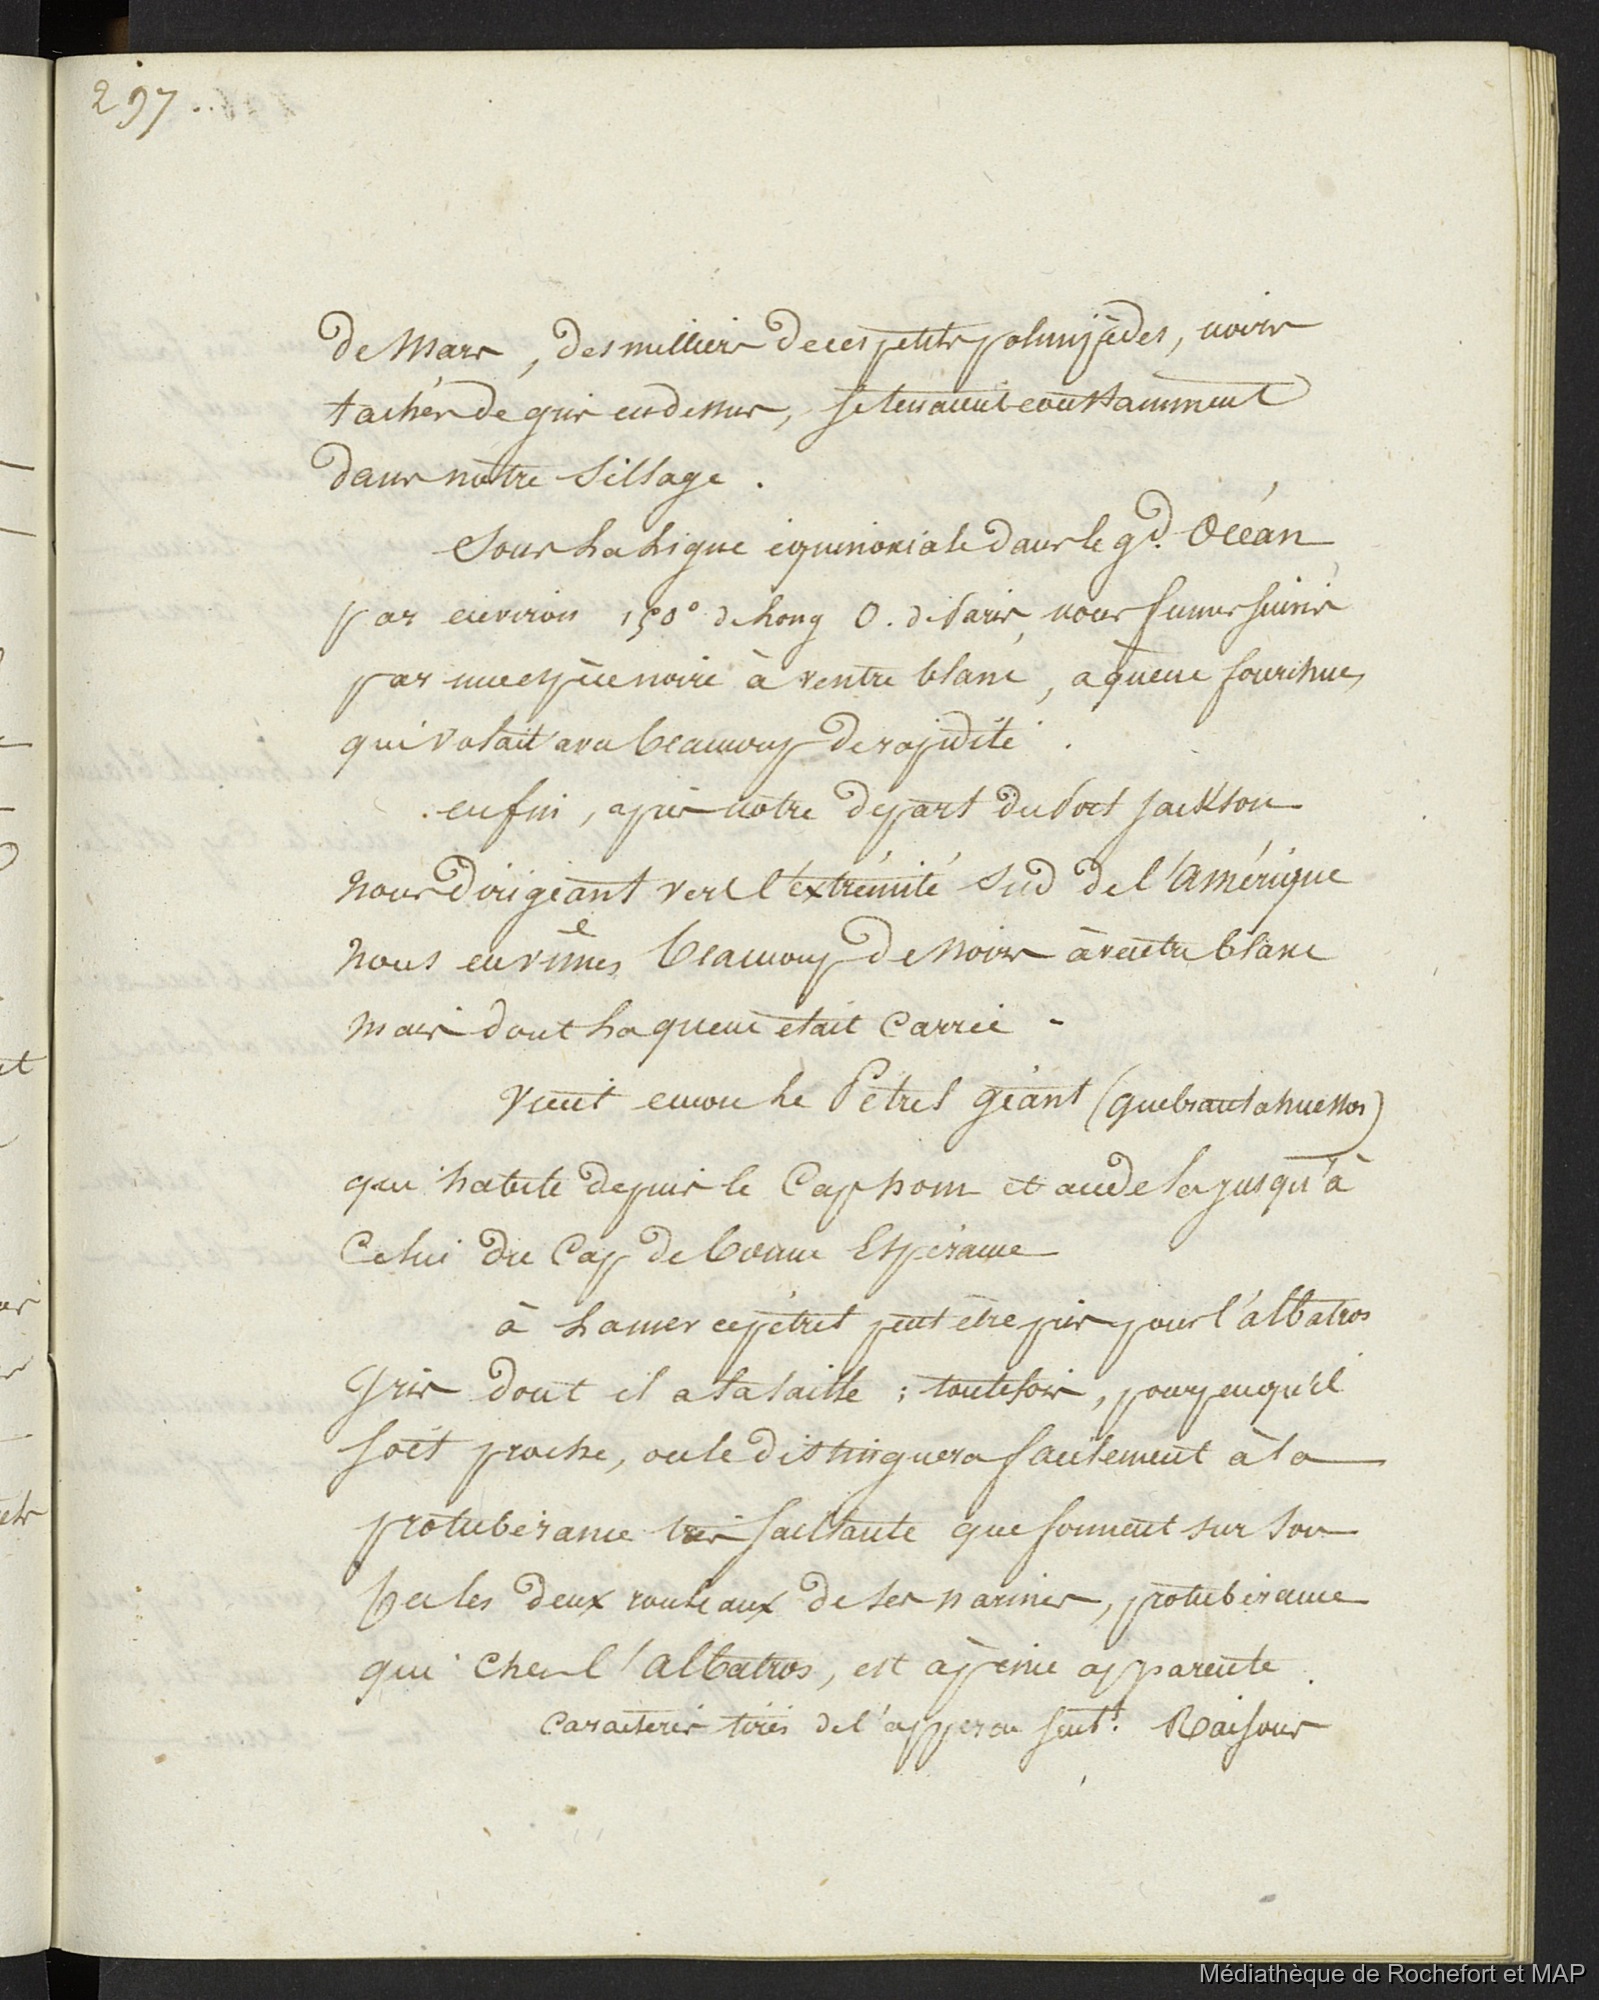 297..
de Mars, des milliers de ces petits palmipèdes, noirs
tachés de gris en dessus, se tenaient constamment
dans nôtre sillage.
Sous la ligne équinoxiale dans le gd. Océan
par environ 150° de Long O. de Paris, nous fumes suivis
par une espèce noire à ventre blanc, a queue fourchue,
qui volait avec beaucoup de rapidité.
enfin, après nôtre départ du Port Jackson
nous dirigeant vers l'extrémité sud de l'Amérique
nous en vîmes beaucoup de noirs à ventre blanc
mais dont la queue etait carrée -
Vient encore le Pétrel géant (quebrantahuessos)
qui habite depuis le Cap horn et au de la jusqu'à
celui du Cap de bonne Espérance
à la mer ce pétrel peut être pris pour l'albatros
gris dont il a la taille ; toutefois, pour peu qu'il
soit proche, on le distinguera facilement à la
protubérance très saillante que forment sur son
bec les deux rouleaux de ses narines, protubérance
qui chez l'albatros, est à peine apparente.
Caractères tirés de l'apperçu seult. Raisons
Médiathèque de Rochefort et MAP